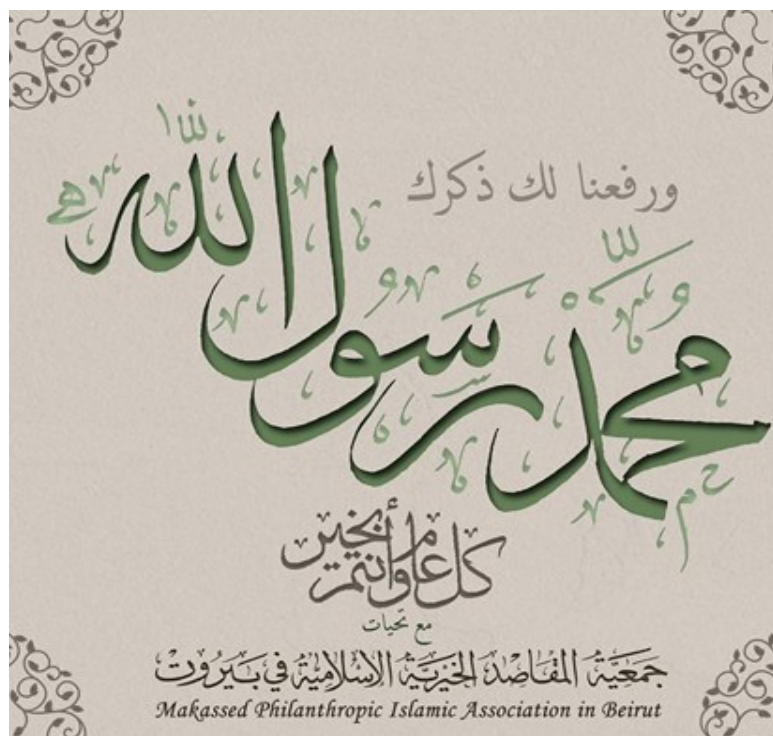 ورفعنا لك ذكرك
محمد رسول الله
كل عام وأنتم بخير
مع تحيات
جمعية المقاصد الخيرية الإسلامية في بيروت
Makassed Philanthropic Islamic Association in Beirut